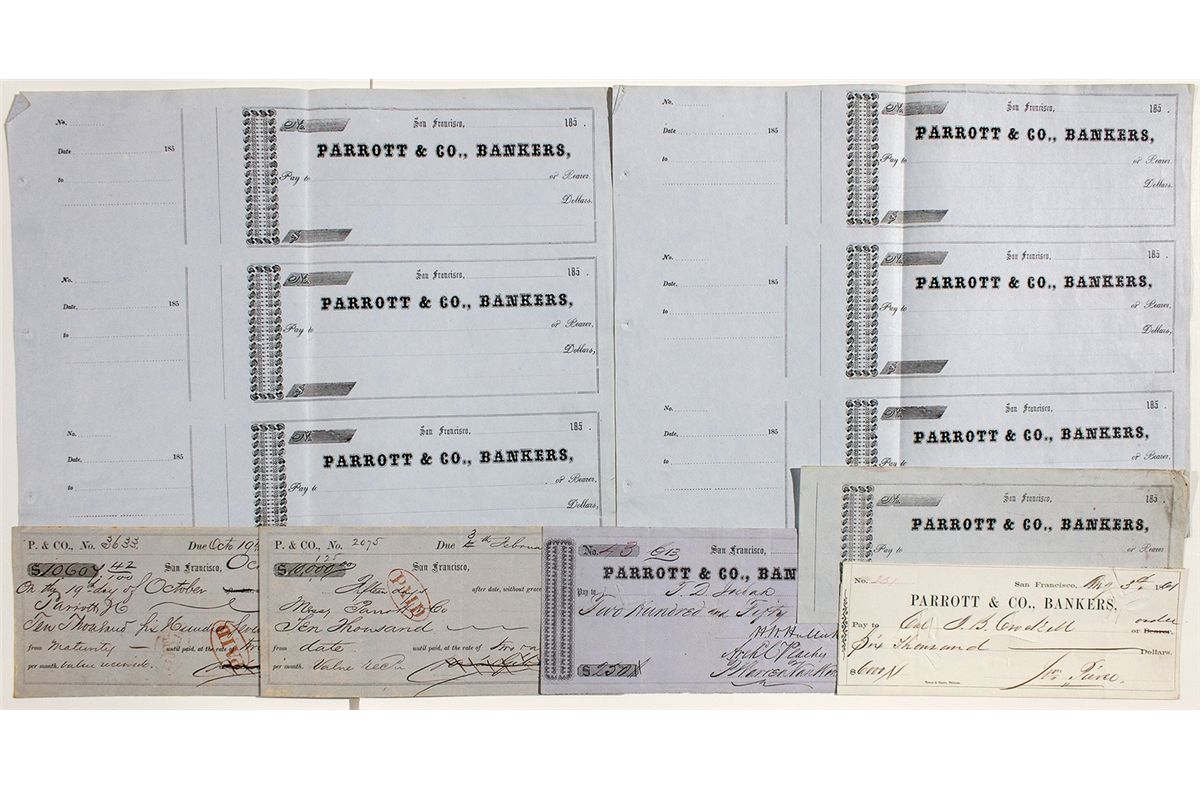 No.
Date 185
to
No. San Francisco, 185 .
PARROTT & CO., BANKERS,
Pay to or Bearer.
Dollars.
$
No.
Date, 185
to
No. San Francisco, 185 .
PARROTT & CO., BANKERS,
Pay to or Bearer,
Dollars,
$
No.
Date, 185
to
No. San Francisco, 185 .
PARROTT & CO., BANKERS,
Pay to or Bearer,
Dollars,
No.
Date 185
to
No. San Francisco, 185 .
PARROTT & CO., BANKERS,
Pay to or Bearer.
Dollars.
$
No.
Date, 185
to
No. San Francisco, 185 .
PARROTT & CO., BANKERS,
Pay to or Bearer,
Dollars,
$
No.
Date, 185
to
No. San Francisco, 185 .
PARROTT & CO., BANKERS,
Pay to or Bearer,
No. San Francisco, 185 .
PARROTT & CO., BANKERS,
Pay to
P. & CO., No. 3633 Due Octo 19
$10604 42/100 San Francisco, Oc
On the 19th day of October
Parrott
Ten Thousand Six Hundred
from maturity until paid, at the rate of
per month. value received.
PAID
P. & CO., No. 2075 Due 3/4th Februa
$10,000 San Francisco,
after date, without grace
Parrott Co
Ten Thousand
from date until paid, at the rate of two
per month. Value rec'd
PAID
No. 43 San Francisco,
PARROTT & CO., BAN
Pay to
Two Hundred and Fifty
$250
No. San Francisco, 3rd 1861
PARROTT & CO., BANKERS,
Pay to Col. J. B. Crockett order
or Bearer,
Six Thousand Dollars.
$6000 Pierce